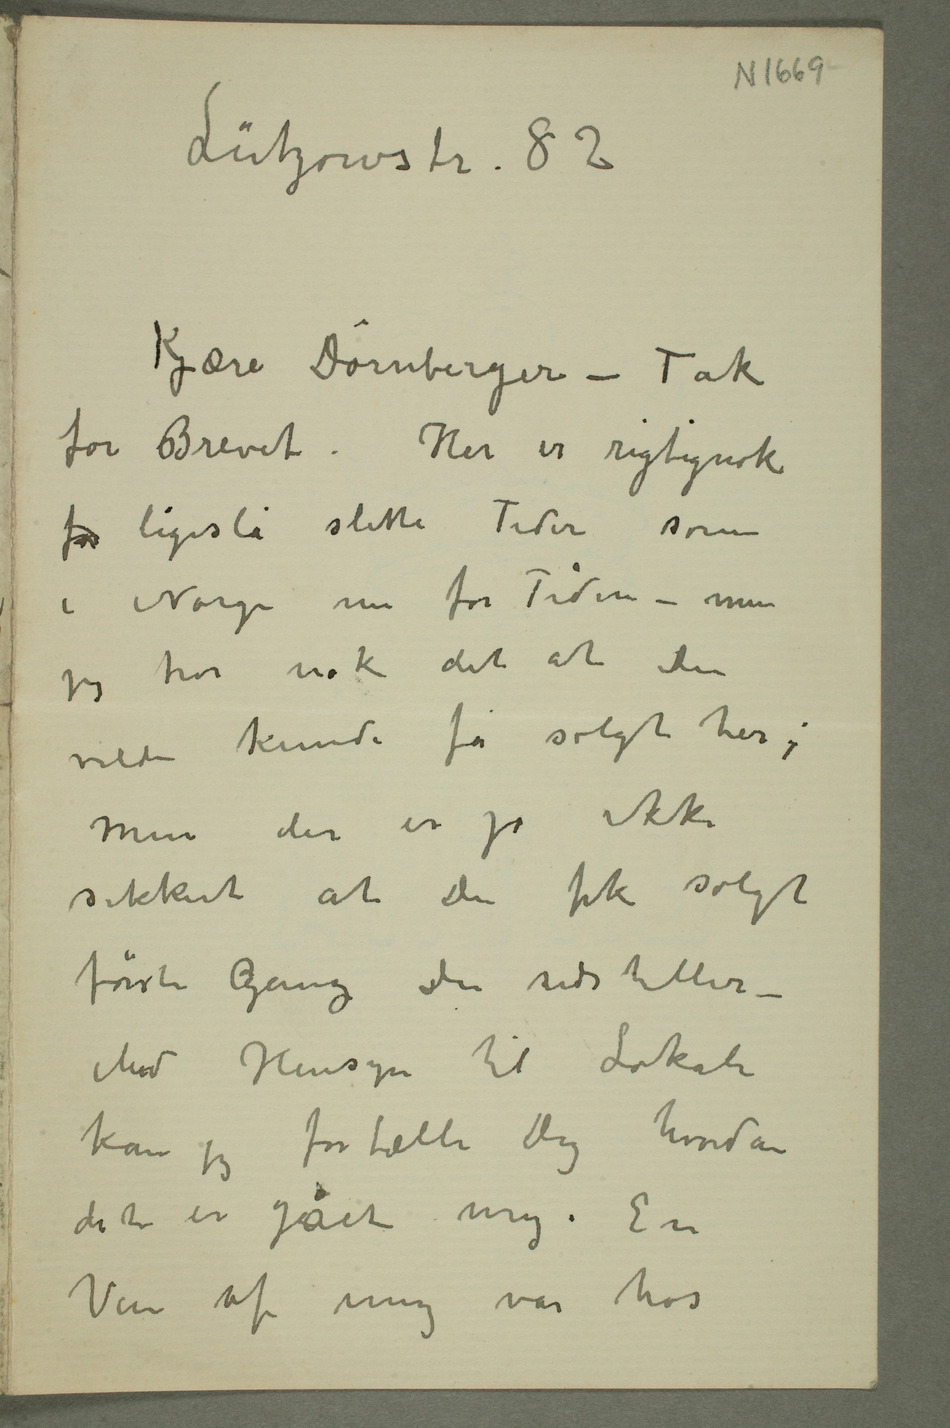 N1669
Lützowstr. 82
Kjære Dörnberger – Tak
for Brevet. Her er rigtignok
for ligeså slette Tider som
i Norge nu for Tiden – men
jeg tror nok det at Du
vilde kunde få solgt her;
men der er jo ikke
sikkert at Du fik solgt
förste Gang Du udstiller –
Med Hensyn til Lokale
kan jeg fortælle Dig hvordan
det er gået mig. En
Ven af mig var hos